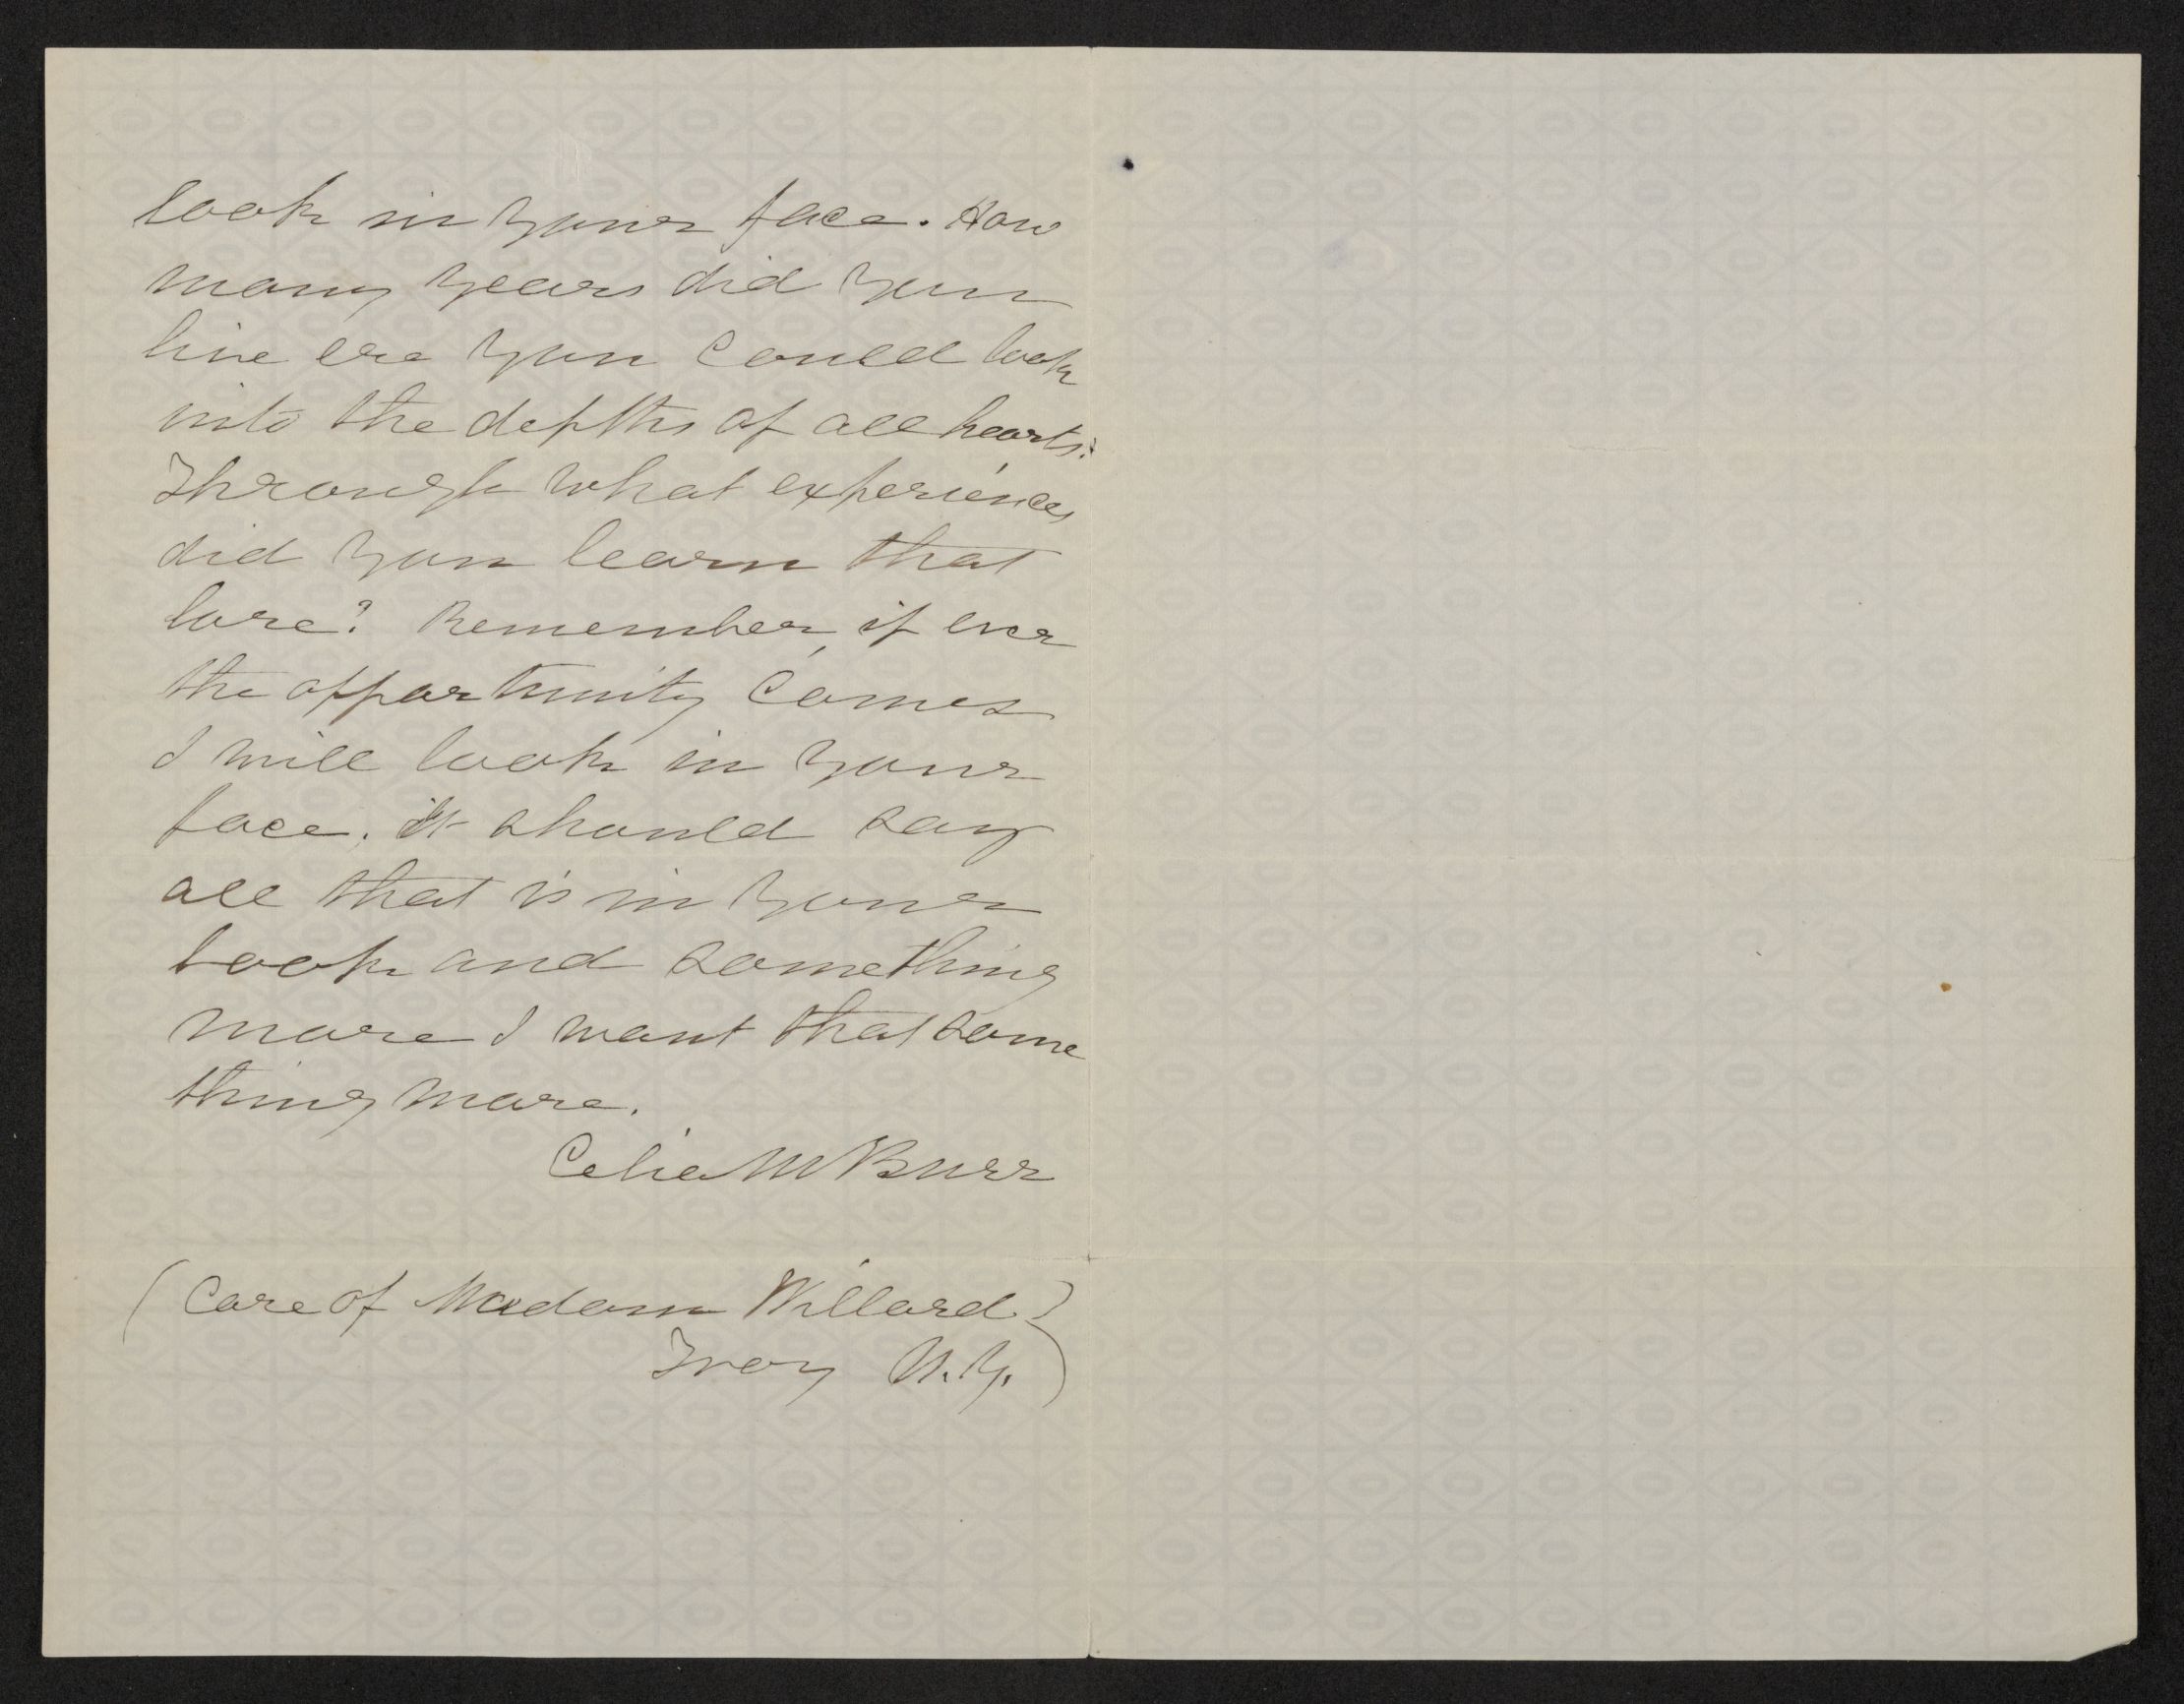 look in your face. How
many years did you
live ere you could look
into the depths of all hearts?
Through what experiences
did you learn that
lore? Remember, if ever
the opportunity comes
I will look in your
face. It should say
all that is in your
book and something
more I want that some
thing more.
Celia M Burr
(Care of Madam Willard)
Troy N.Y.)